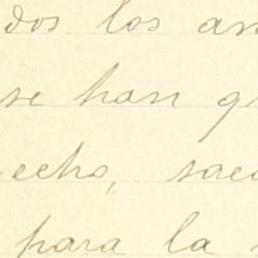 dos los an
se han g
echo, sac
para la